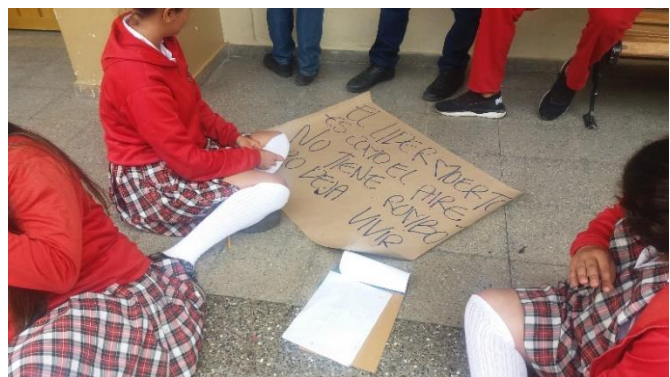 EL LIDER MUERTO
ES COMO EL AIRE.
NO TIENE RUMBO
DEJA VIVIR